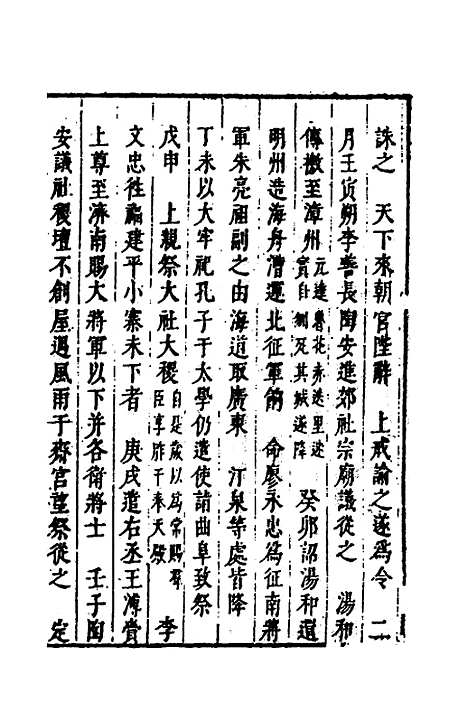 誅之　天下來朝官陛辭　上戒諭之遂為令　二
月壬寅朔李善長陶安進郊社宗廟議從之　湯和
傳檄至漳州元達魯花赤迭里迷實自刎死其城遂降　癸卯詔湯和還
明州造海舟漕運北征軍餉　命廖永忠為征南將
軍朱亮祖副之由海道取廣東　汀泉等處皆降
丁未以大牢祀孔子于太學仍遣使詣曲阜致祭
戊申　上親祭大社大稷自是歲以為常賜群臣享胙于奉天殿　李
文忠徃福建平小寨未下者　庚戌遣右丞王溥賫
上尊至濟南賜大將軍以下并各衛將士　壬子陶
安議社稷壇不創屋遇風雨于齋宮望祭從之　定